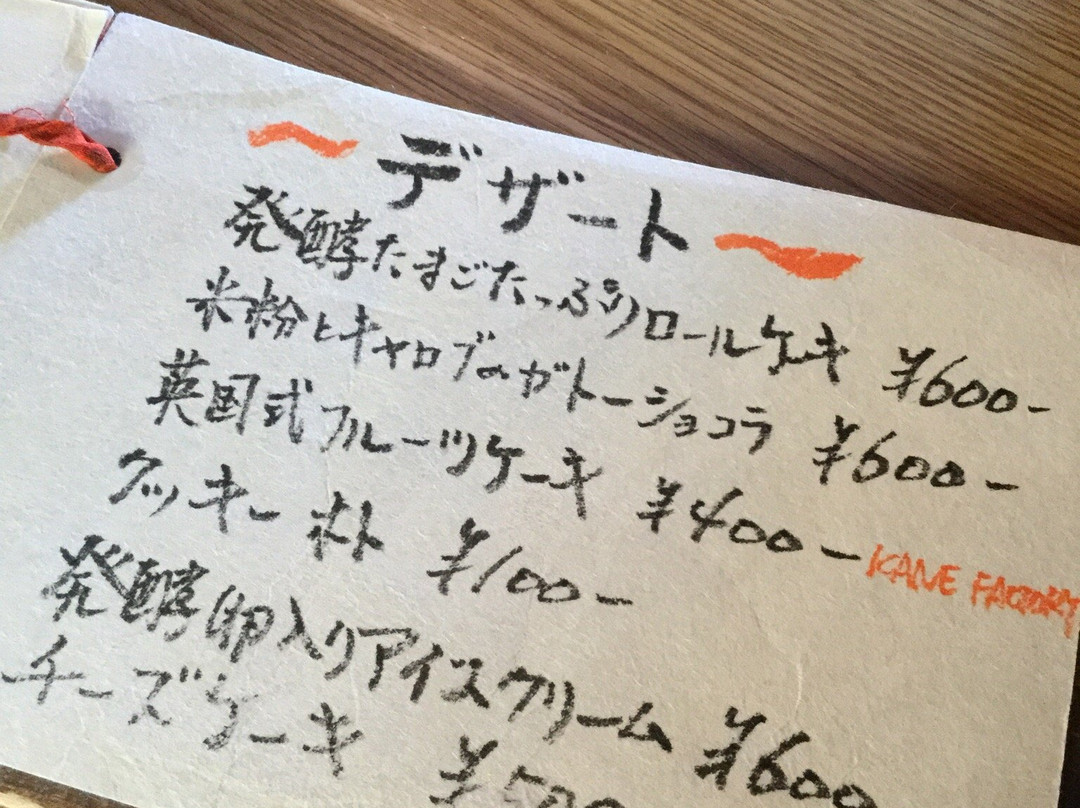 デザート
発酵たまごたっぷりロールケーキ ¥600-
米粉とキャロブのガトーショコラ ¥600-
英国式フルーツケーキ ¥400- KANE FACTORY
クッキー ¥100-
発酵卵入りアイスクリーム ¥600
チーズケーキ ¥500